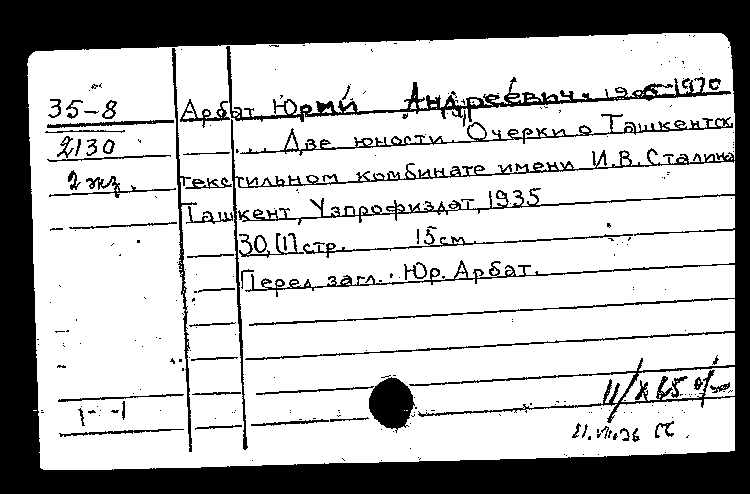 35-8 Арбат, Юрий Андреевич. 1905-1970
2130 ... Две юности. Очерки о Ташкентск.
2 экз. текстильном комбинате имени И.В. Сталина
Ташкент, Узпрофиздат, 1935
30, [1] стр. 15 см.
Перед загл.: Юр. Арбат.
11/X 65
21.VII.36